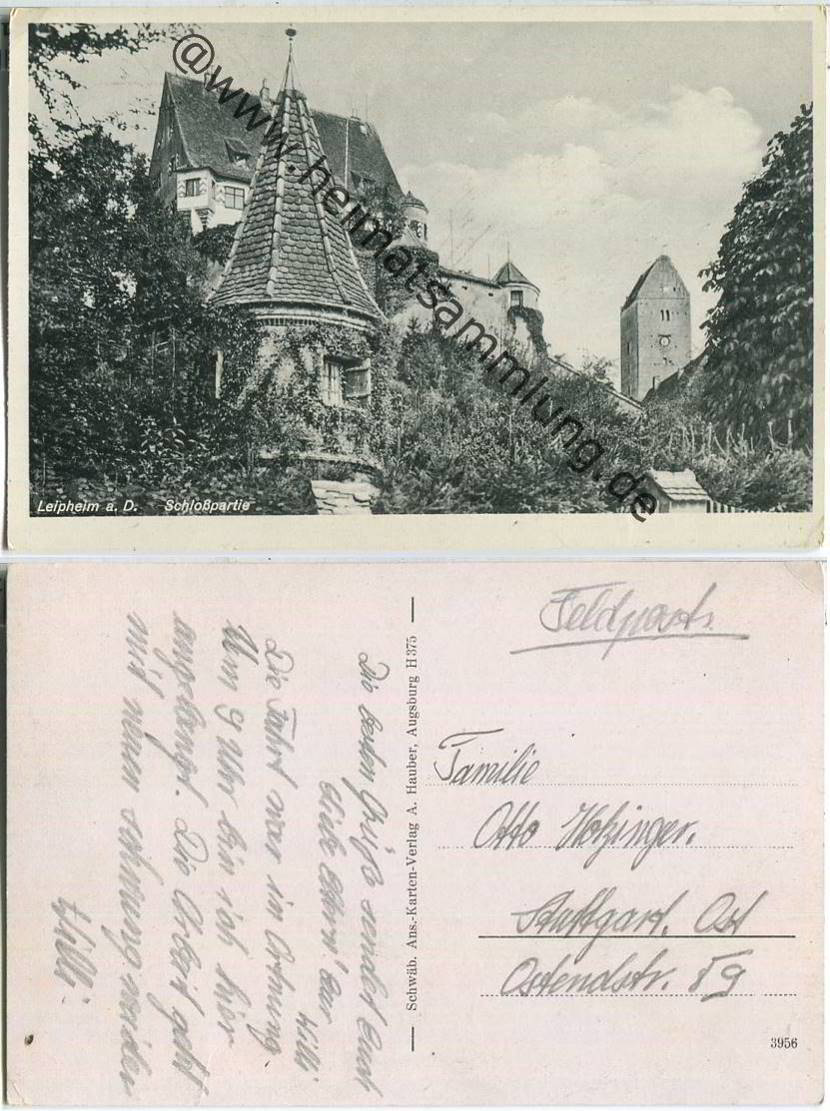 @www.heimatsammlung.de
Leipheim a. D. Schloßpartie
Feldpost.
Familie
Otto Holzinger.
Stuttgart. Ost
Ostendstr. 59
3956
Schwäb. Ans.-Karten-Verlag A. Hauber, Augsburg H 375
Die besten Grüße sendet Euch
liebe Eltern! Eur
Willi
Die Fahrt war in Ortnung
Um 9 Uhr bin ich hier
angelangt. Die Arbeit geht
mit neuen schwung
Willi.